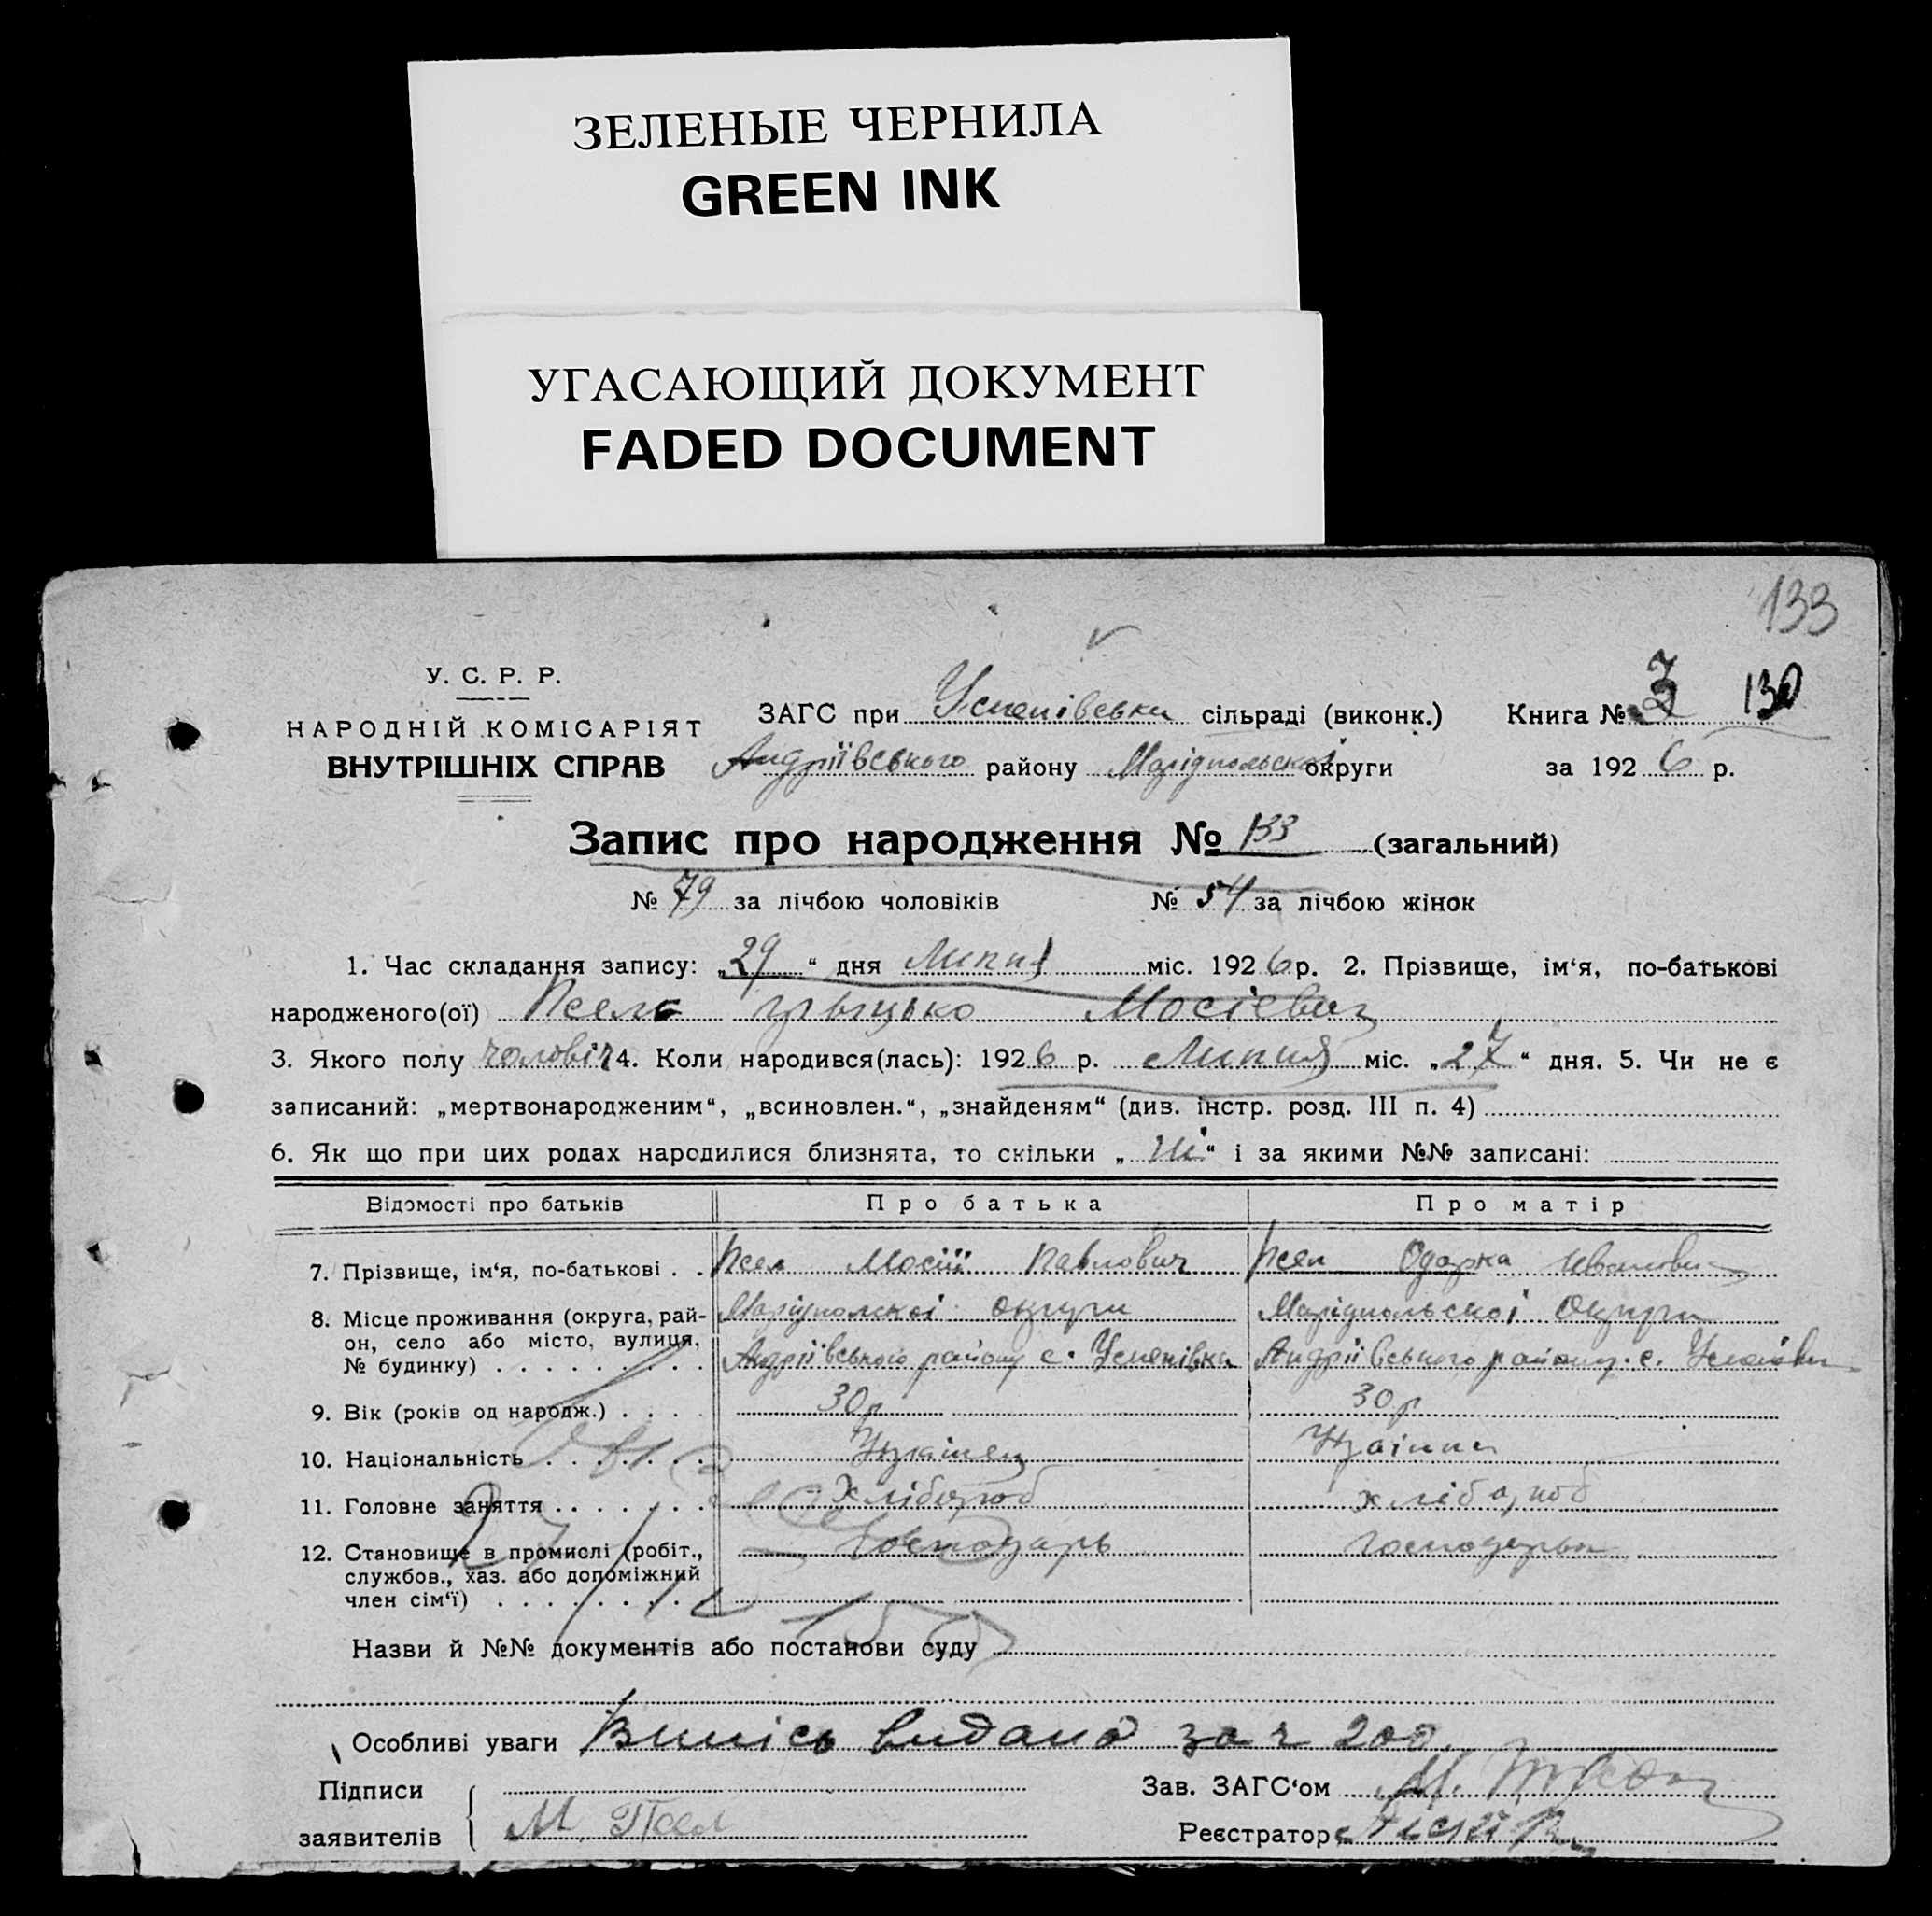 ЗЕЛЕНЫЕ ЧЕРНИЛА
GREEN INK
УГАСАЮЩИЙ ДОКУМЕНТ
FADED DOCUMENT
133
У. С. Р. Р.
НАРОДНІЙ КОМІСАРІЯТ
ВНУТРІШНІХ СПРАВ
ЗАГС при Успенівськи сільраді (виконк.) Книга № 130
Андріївського району Маріупольскої округи за 1926 р.
Запис про народження № 133 (загальний)
№ 79 за лічбою чоловіків № 54 за лічбою жінок
1. Час складання запису: „29“ дня Липня міс. 1926 р. 2. Прізвище, ім‘я, по-батькові
народженого(ої) Псел Грыцько Мосієвич
3. Якого полу чоловіч 4. Коли народився(лась): 1926 р. Липня міс. „27“ дня. 5. Чи не є
записаний: „мертвонародженим“, „всиновлен.“, „знайденям“ (див. інстр. розд. III п. 4)
6. Як що при цих родах народилися близнята, то скільки „ні“ і за якими №№ записані:
Відомості про батьків Про батька Про матір
7. Прізвище, ім‘я, по-батькові . . Псел Мосій Павлович Псел Одарка Ивановна
8. Місце проживання (округа, рай- Маріупольскої округи Маріупольскої Округи
он, село або місто, вулиця, Андріївського району с. Успенівки Андріївського району с.
№ будинку) . . . . . . . . .
9. Вік (років од народж.) . . . . 30 р 30 р
10. Національність . . . . . . . Українец
11. Головне заняття . . . . . . . Хлібороб хлібороб
12. Становище в промислі (робіт., Господарь господарка
службов., хаз. або допоміжний
член сім‘ї) . . . . . . . .
Назви й №№ документів або постанови суду
Особливі уваги Випісь видано за ч 200
Підписи Зав. ЗАГС‘ом М.
заявителів М. Псел Реєстратор